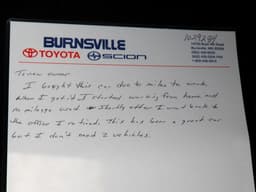 BURNSVILLE
TOYOTA SCION
To new owner
I bought this car due to miles to work
When I got it I started working from home and
no mileage used. Shortly after I went back to
the office I retired. This has been a great car
but I don't need 2 vehicles.